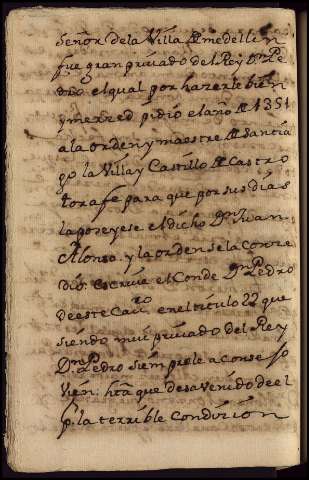 señor dela Villa de medellin
fue gran privado del Rey Dn Pe
dro elqual por hazerle bien
y merzed pidio el año de 1351
ala orden y maestre de Santia
go la Villa y Castillo de Castro
torafe para que por sus dias
la poseyese el dicho Dn Juan
Alonso. y la orden se la conce
dio. escrive el Conde Dn Pedro
de este Cavro en el titulo 22 que
siendo mui privado del Rey
Dn Pedro siempre le aconsejo
vien. hta que desavenido de el
p. la terrible condicion